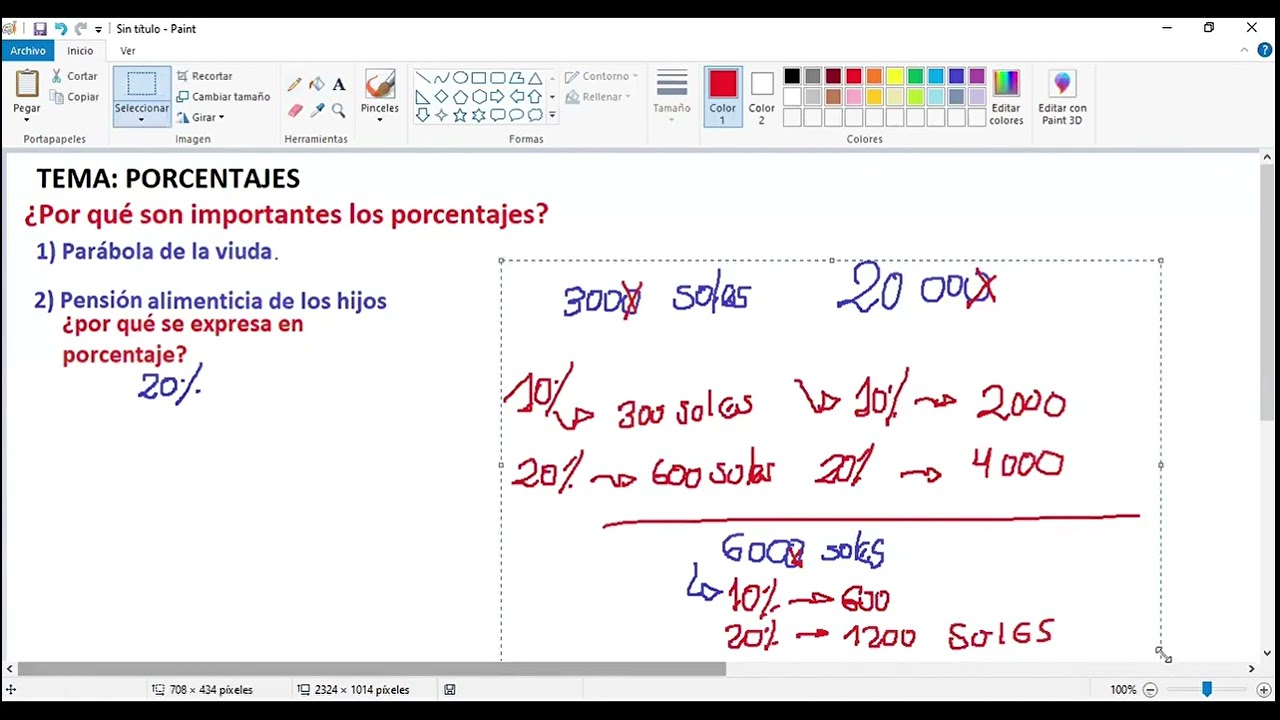 Sin título - Paint
Archivo Inicio Ver
Pegar
Cortar
Copiar
Portapapeles
Seleccionar
Recortar
Cambiar tamaño
Girar
Imagen
Herramientas
Pinceles
Contorno
Rellenar
Formas
Tamaño
Color 1
Color 2
Editar colores
Colores
Editar con Paint 3D
TEMA: PORCENTAJES
¿Por qué son importantes los porcentajes?
1) Parábola de la viuda.
2) Pensión alimenticia de los hijos
¿por qué se expresa en
porcentaje?
20%
3000 soles 20 000
10% → 300 soles → 10% → 2000
20% → 600 soles 20% → 4000
6000 soles
→ 10% → 600
20% → 1200 soles
708 × 434 píxeles 2324 × 1014 píxeles 100%